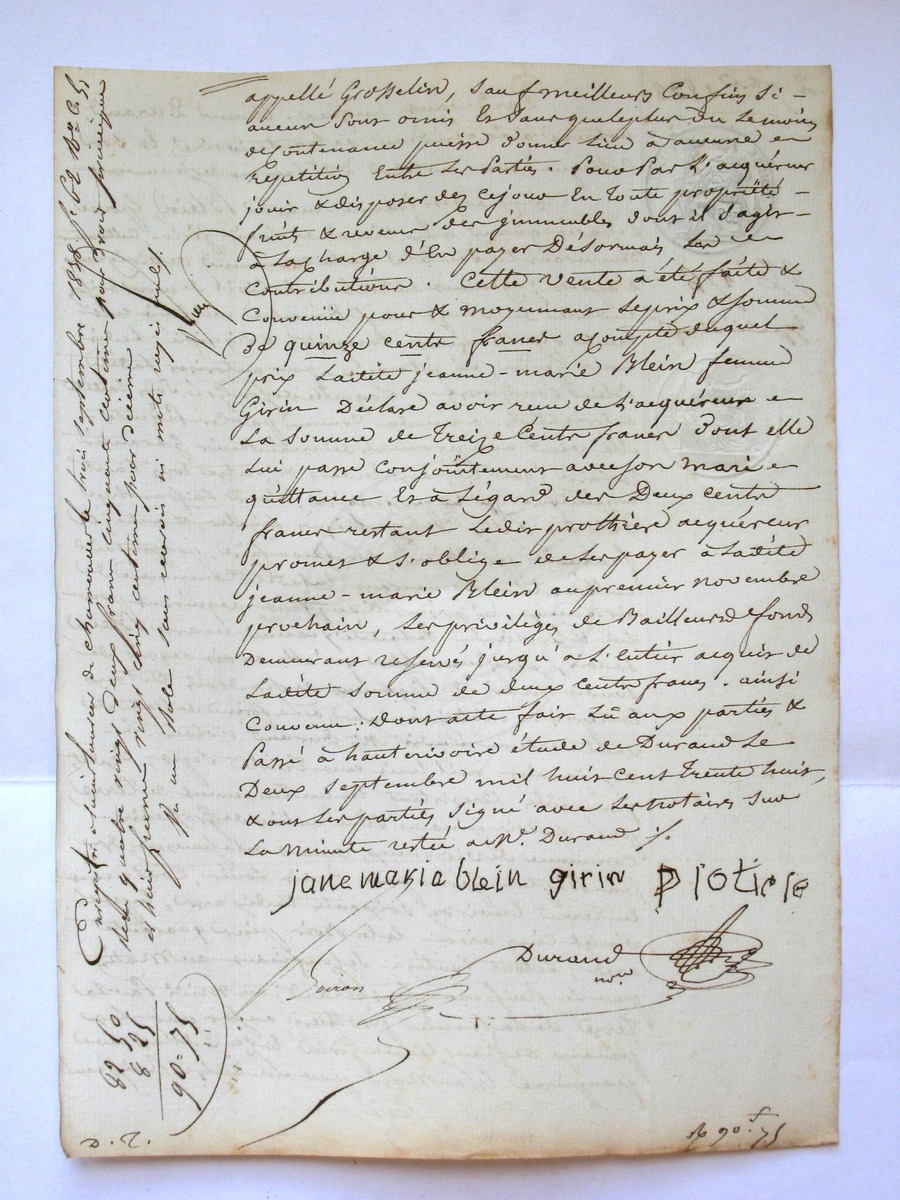 appellé Grosselin, Sauf meilleurs Confins Si -
aucun Sont omis Et Sans que le plus ou Le moins
de Contenance puisse donner Lieu à aucune
repetition Entre Les Parties. Pour Par L'acquéreur
jouir & disposer dez ce jour En toute propriété -
fruits & revenus des immeubles dont il S'agit -
à La charge d'En payer Désormais Les
Contributions. Cette vente a été faite &
Convenüe pour & moyennant Le prix & Somme
De quinze cents francs a compte duquel
prix Ladite jeanne-marie Blein femme
Girin Déclare avoir reçu de L'acquéreur
La Somme de Treize Cents francs dont elle
Lui passe conjointement avec Son mari
quittance Et à L'égard des Deux cents
francs restant Ledit prothière acquéreur
promet & S'oblige de Les payer à Ladite
jeanne-marie Blein au premier novembre
prochain, Les privilèges de Bailleurs de fonds
Demeurant reservés jusqu'à L'entier acquit de
Ladite Somme de deux cents francs. ainsi
Convenu : Dont acte fait Lû aux parties &
Passé à hauterivoire étude de Durand Le
Deux Septembre mil huit Cent Trente huit,
& ont Les parties Signé avec Les Notaires Sur
La Minute restée à Me. Durand ./.
jane maria blein girin protiere
Durand
nore
Goiron
Enregistré à Saint Laurent de chamousset le trois septembre 1838
reçu quatre vingt deux francs cinquante centimes pour droit principal
et huit francs vingt cinq centimes pour décime
82 50
8 25
90=75
90f 75